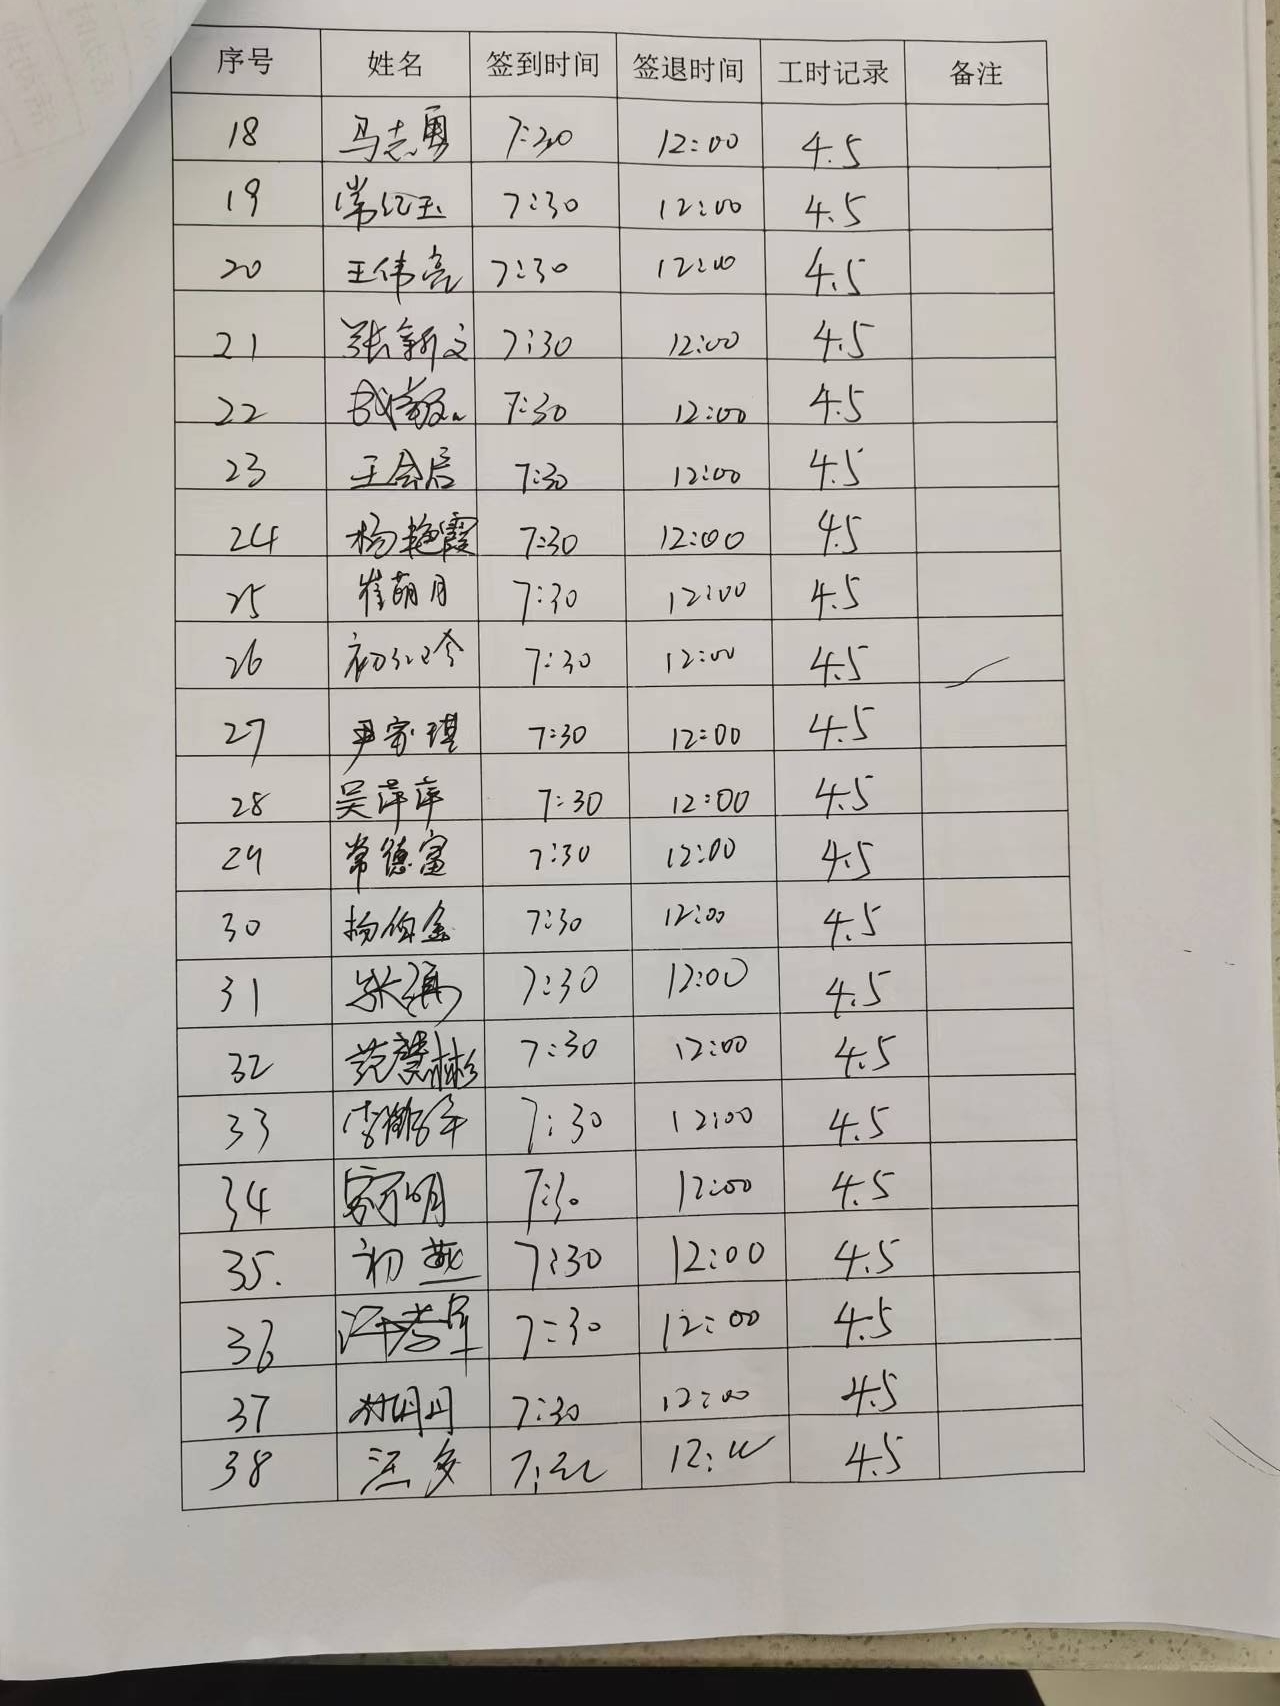 序号 姓名 签到时间 签退时间 工时记录 备注
18 马志勇 7:30 12:00 4.5
19 常红玉 7:30 12:00 4.5
20 王伟亮 7:30 12:00 4.5
21 张新文 7:30 12:00 4.5
22 7:30 12:00 4.5
23 王会启 7:30 12:00 4.5
24 杨艳霞 7:30 12:00 4.5
25 崔萌月 7:30 12:00 4.5
26 初红玲 7:30 12:00 4.5
27 尹家琪 7:30 12:00 4.5
28 吴萍萍 7:30 12:00 4.5
29 常德富 7:30 12:00 4.5
30 杨伯金 7:30 12:00 4.5
31 7:30 12:00 4.5
32 范慧彬 7:30 12:00 4.5
33 7:30 12:00 4.5
34 7:30 12:00 4.5
35. 初燕 7:30 12:00 4.5
36 7:30 12:00 4.5
37 7:30 12:00 4.5
38 汪多 7:30 12:00 4.5